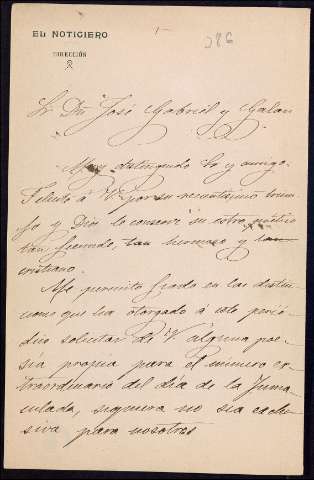 EL NOTICIERO
DIRECCIÓN
286
Sr Dn José Gabriel y Galan
Muy distinguido Sr y amigo:
Felicito á V. por su recentísimo triun-
fo y Dios le conserve su estro poético
tan fecundo, tan hermoso y tan
cristiano.
Me permito fiado en las distin-
ciones que ha otorgado á este perió-
dico solicitar de V alguna poe-
sía propia para el número ex-
traordinario del dia de la Inma-
culada, siquiera no sea exclu-
siva para nosotros